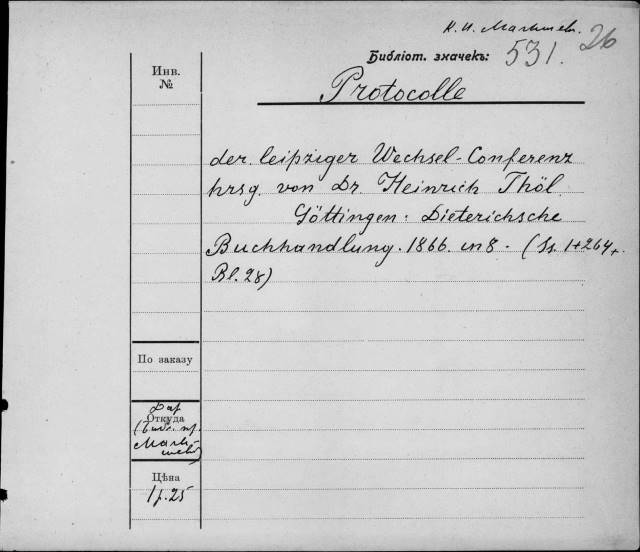 К. И. Малышев. 26
Библіот. значекъ: 531.
Инв.
№
Protocolle
der leipziger Wechsel-Conferenz
hrsg. von Dr. Heinrich Thöl.
Göttingen. Dieterichsche
Buchhandlung. 1866. in 8. (Ss. 1+264+
Bl. 28)
По заказу
Дар
Откуда
Малы-
шева)
Цѣна
1 р. 25